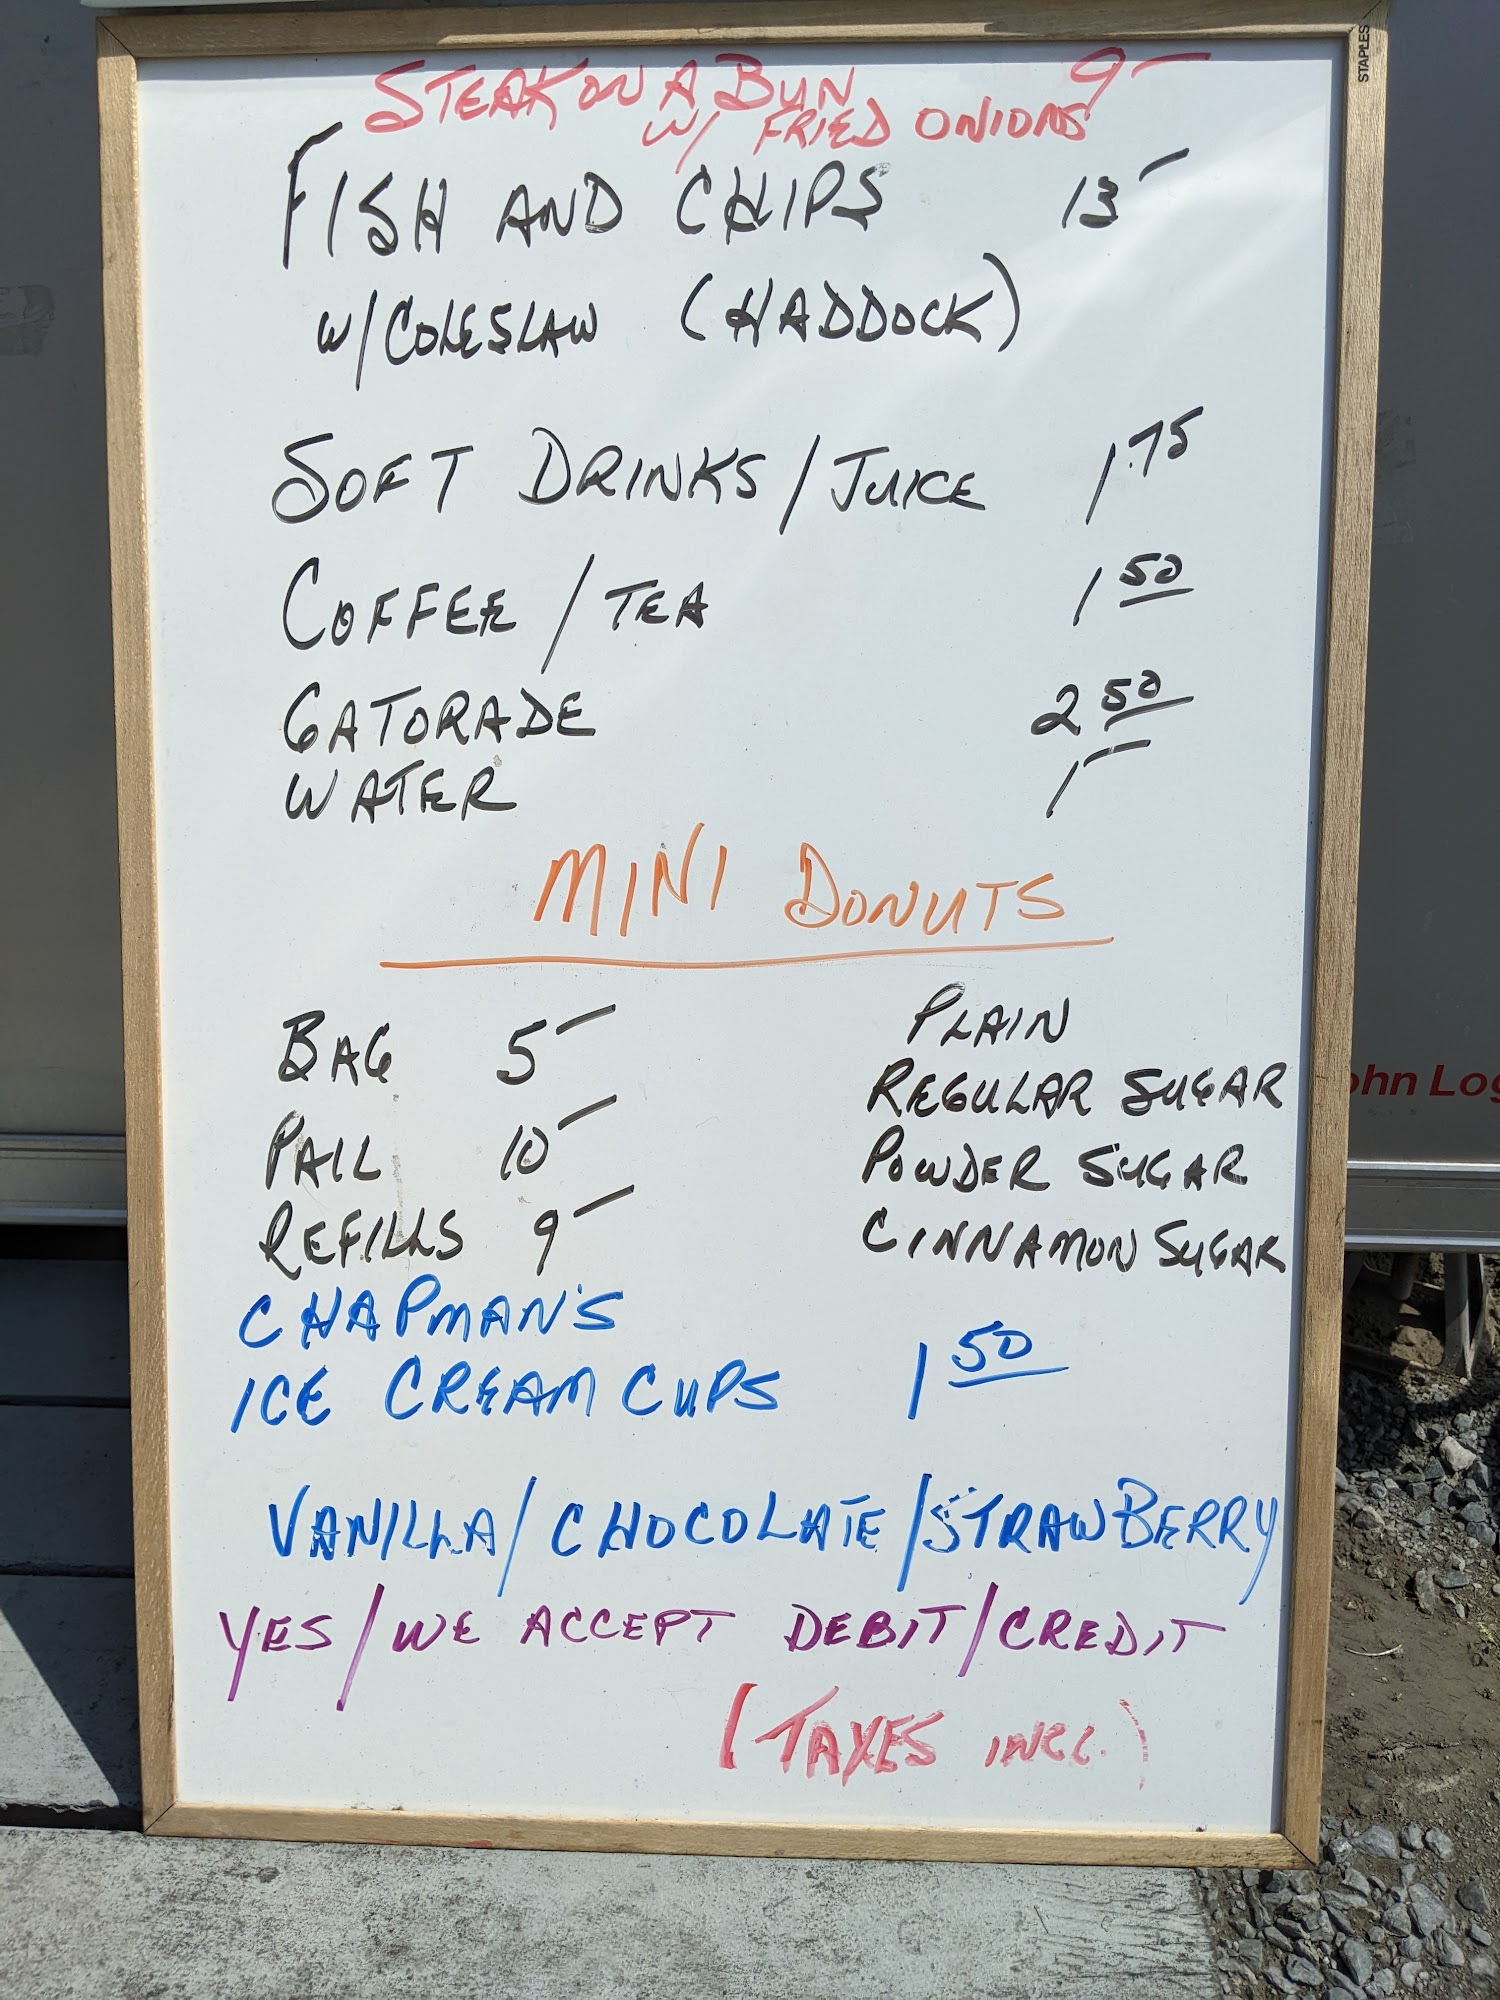 STEAK ON A BUN 9-
W/ FRIED ONIONS
FISH AND CHIPS 13-
W/COLESLAW (HADDOCK)
SOFT DRINKS/JUICE 1.75
COFFEE/TEA 1 50
GATORADE 2 50
WATER 1-
MINI DONUTS
BAG 5-
PAIL 10-
REFILLS 9-
PLAIN
REGULAR SUGAR
POWDER SUGAR
CINNAMON SUGAR
CHAPMAN'S
ICE CREAM CUPS 1 50
VANILLA/CHOCOLATE/STRAWBERRY
YES/WE ACCEPT DEBIT/CREDIT
(TAXES INCL.)
STAPLES
ohn Log